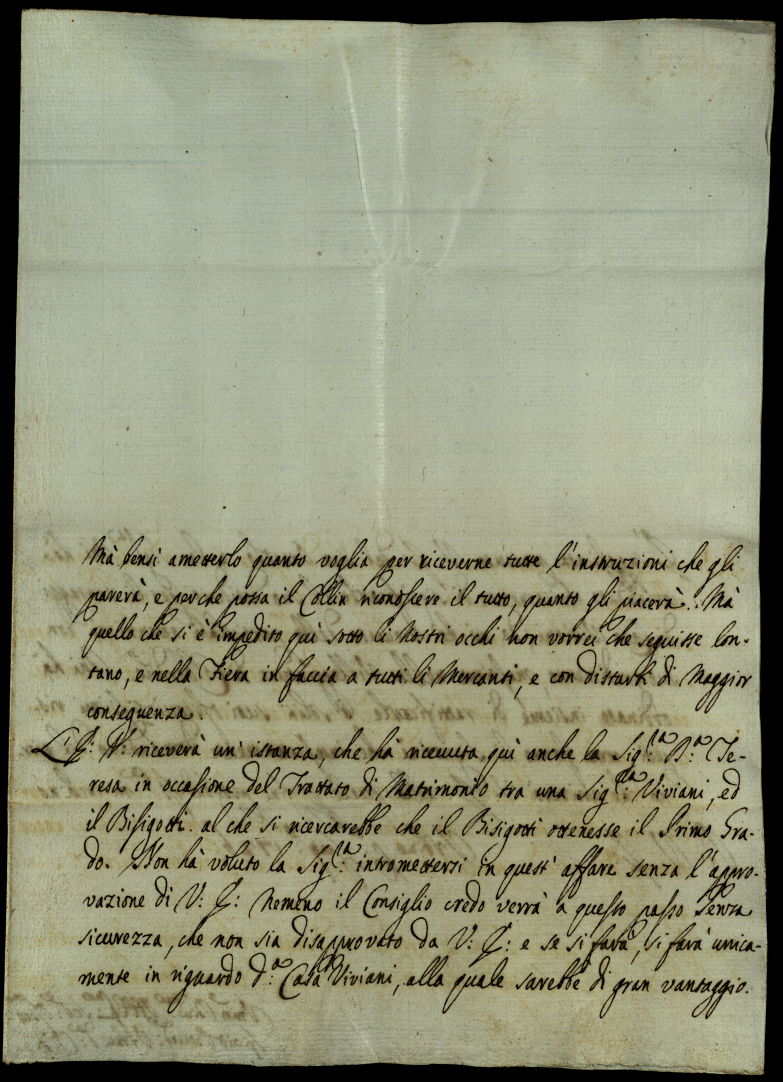 Mà bensì ametterlo quanto voglia per riceverne tutte l'instruzioni che gli
parerà, e perche possa il Collin riconoscere il tutto, quanto gli piacerà. Mà
quello che si è impedito quì sotto li Nostri occhi non vorrei che seguisse lon-
tano, e nella Fiera in faccia a tutti li Mercanti, e con disturbi di Maggior
conseguenza.
L'J: V: riceverà un' istanza, che hà ricevuta quì anche la Sig.ra B.a Te-
resa in occasione del Trattato di Matrimonio tra una Sig.ra Viviani, ed
il Bisigotti. al che si ricercarebbe che il Bisigotti ottenesse il Primo Gra-
do. Non hà voluto la Sig.ra intromettersi in quest' affare senza l'appro-
vazione di V: J: Nemeno il Consiglio credo verrà a questo passo senza
sicurezza, che non sia disapprovato da V: J: e se si farà, si farà unica-
mente in riguardo d.a Casa Viviani, alla quale sarebbe di gran vantaggio.